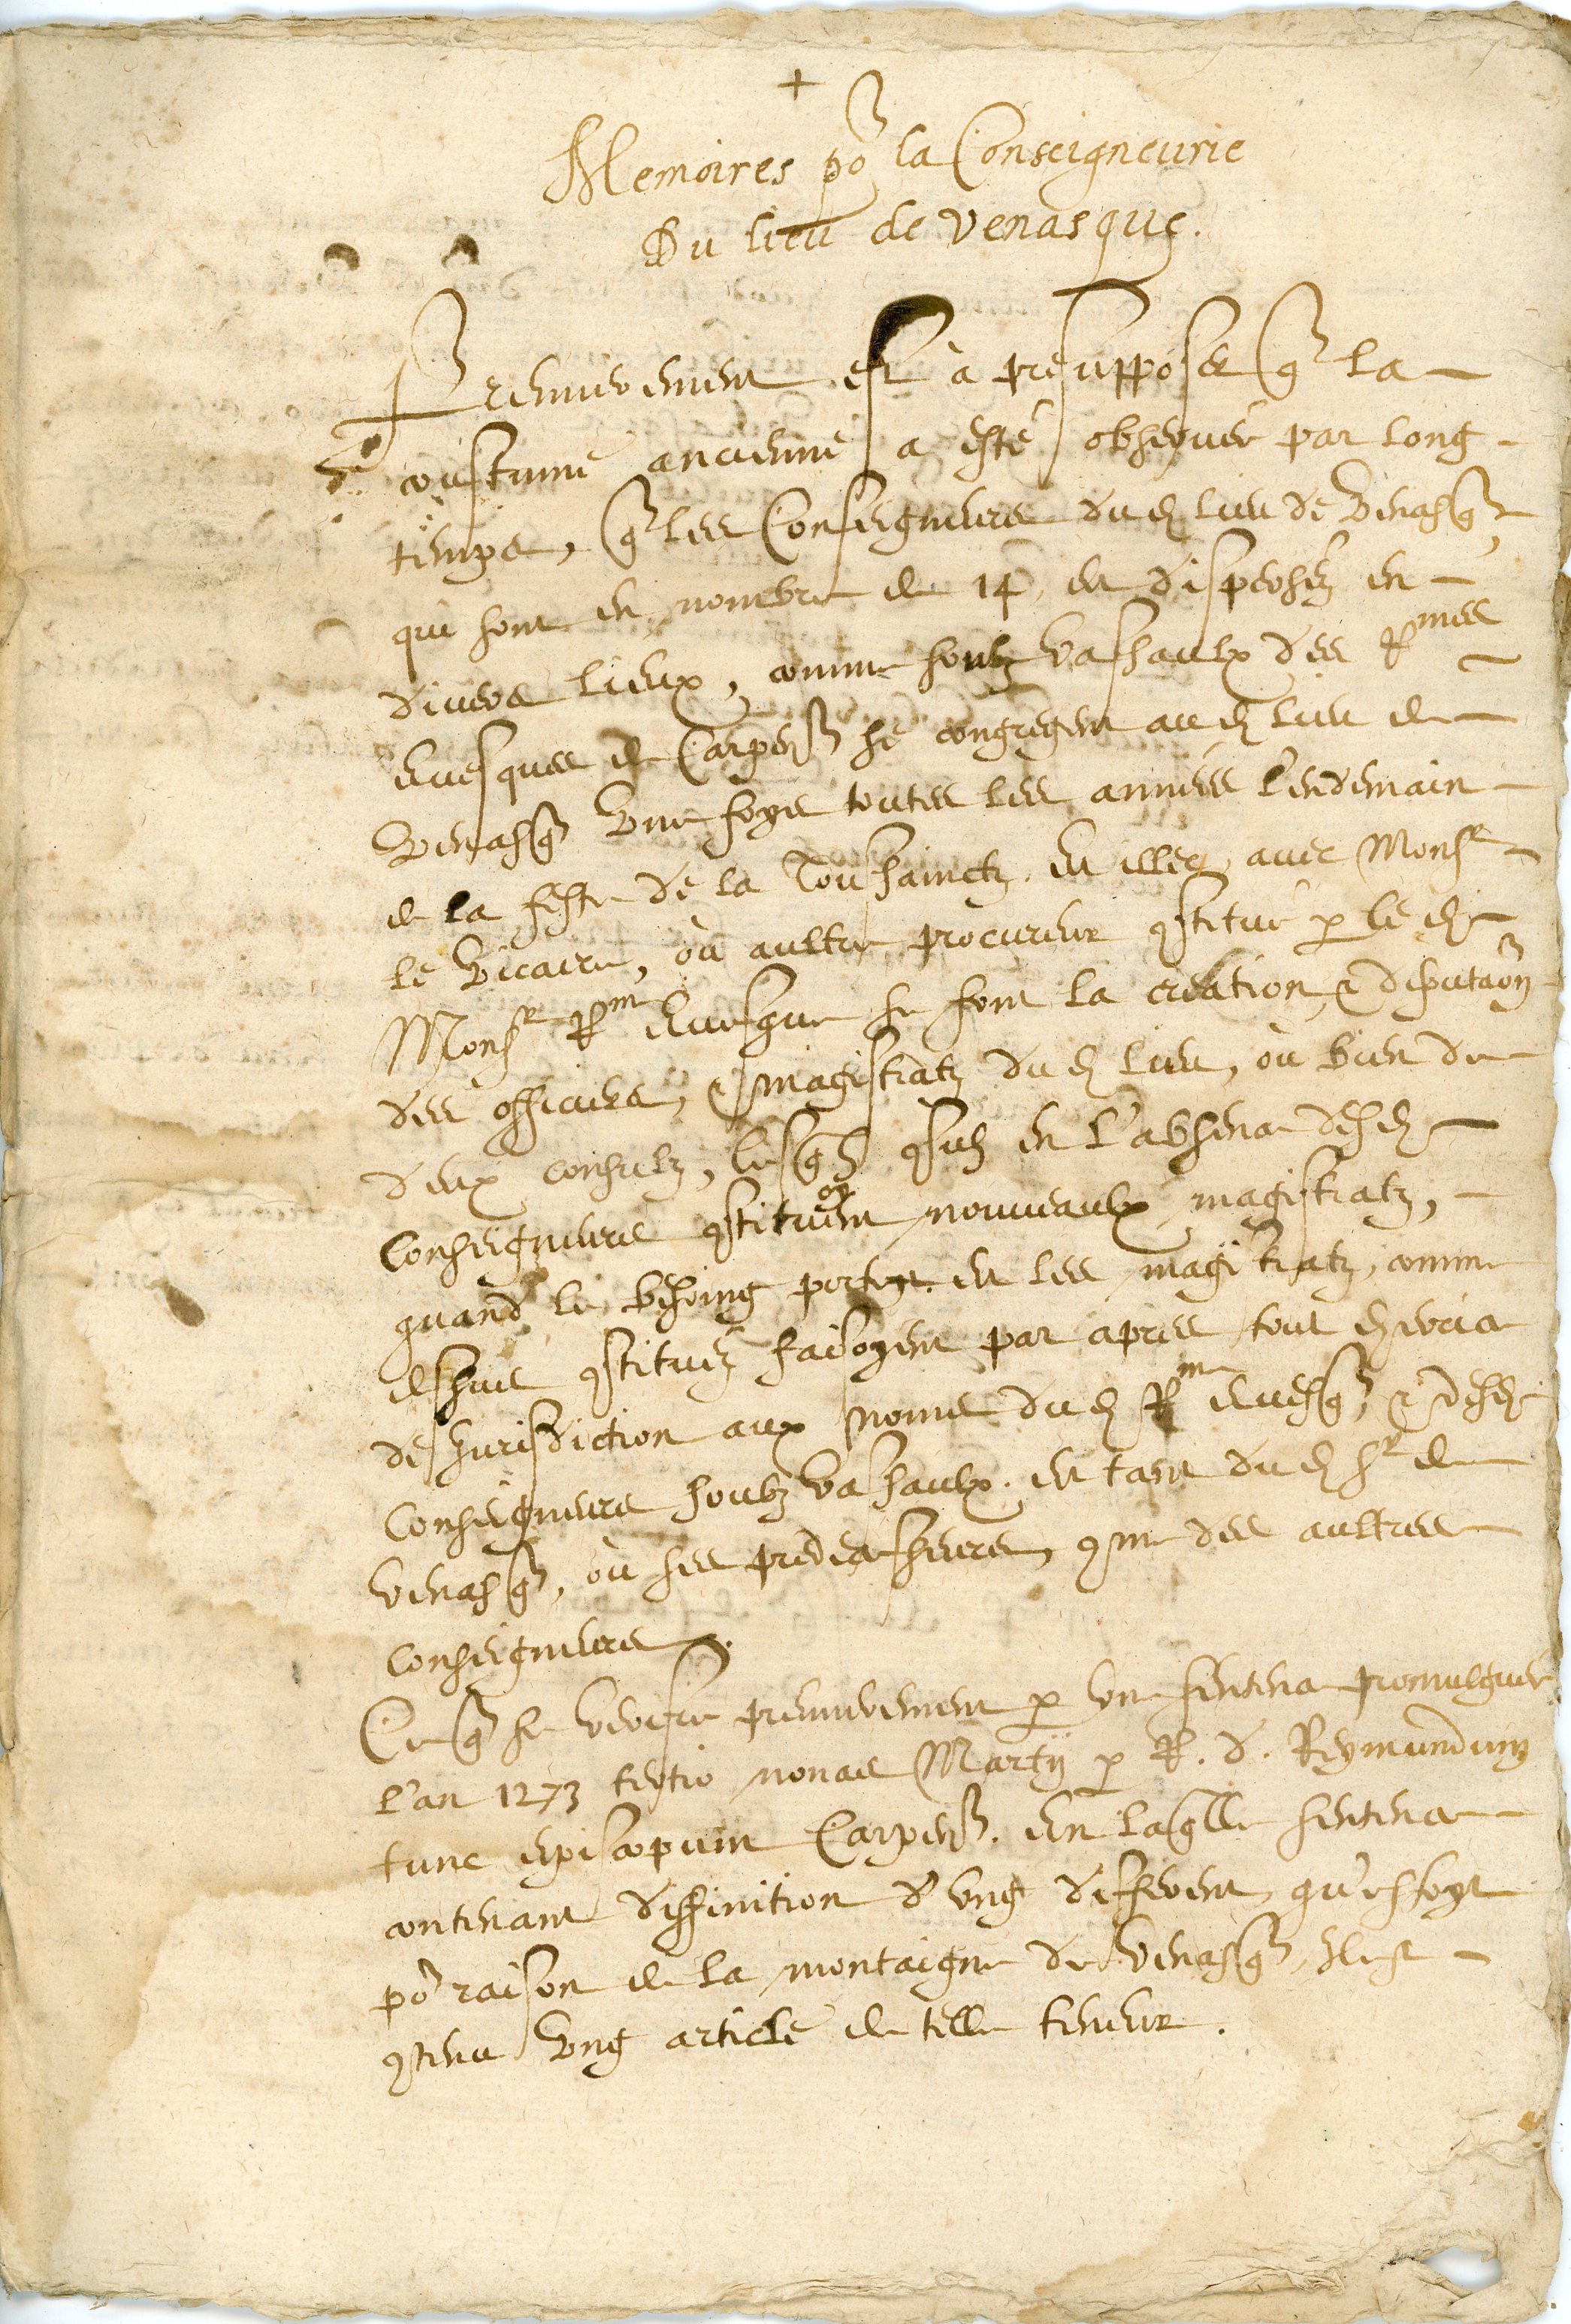 +
Memoires po^r la Conseigneurie
Du lieu de Venasque.
Premierement est à presuppose^r q^ la
coustume ancienne a esté observée par long
temps, q^ les Conseigneurs dud. lieu de Venasq^
qui sont en nombre de 14, et dispersez en
divers lieux, comme soubz vassaulx des R^mes
evesques de Carpen^s se congregent aud. lieu de
Venasq^ une foys toutes les années l'endemain
de la feste de la Toussainctz. et illec avec Mons^r
le vicaire, où aultre procureur 9stitué p^ le d.
Mons^r R^m evesque se font la creation, & deputaõn
des officiers, & magistratz du d. lieu, où bien de
deux consulz, lesq^lz 9sulz en l'absence desd.
Conseigneurs 9stituoyent nouveaulx magistratz,
quand le besoing portoyt. et les magi tratz, comme
dessus 9stituez faisoyent par apres tout exercice
de jurisdiction aux noms du d. R^me evesq^, & desd.
Conseigneurs soubz vassaulx. et tant du d. s^r de
Venasq^, où ses predecesseurs, 9me des aultres
Conseigneurs.
Ce q^ se verifie premierement p^ une sentence promulguée
l'an 1273 tertio nonas Martij p^ R. d. Reymundum
tunc episcopum Carpen^s. En laq^lle sentence
contenant diffinition d'ung different, qu'estoyt
po^r raison de la montaigne de Venasq^, il est
9tenu ung article de telle teneur.